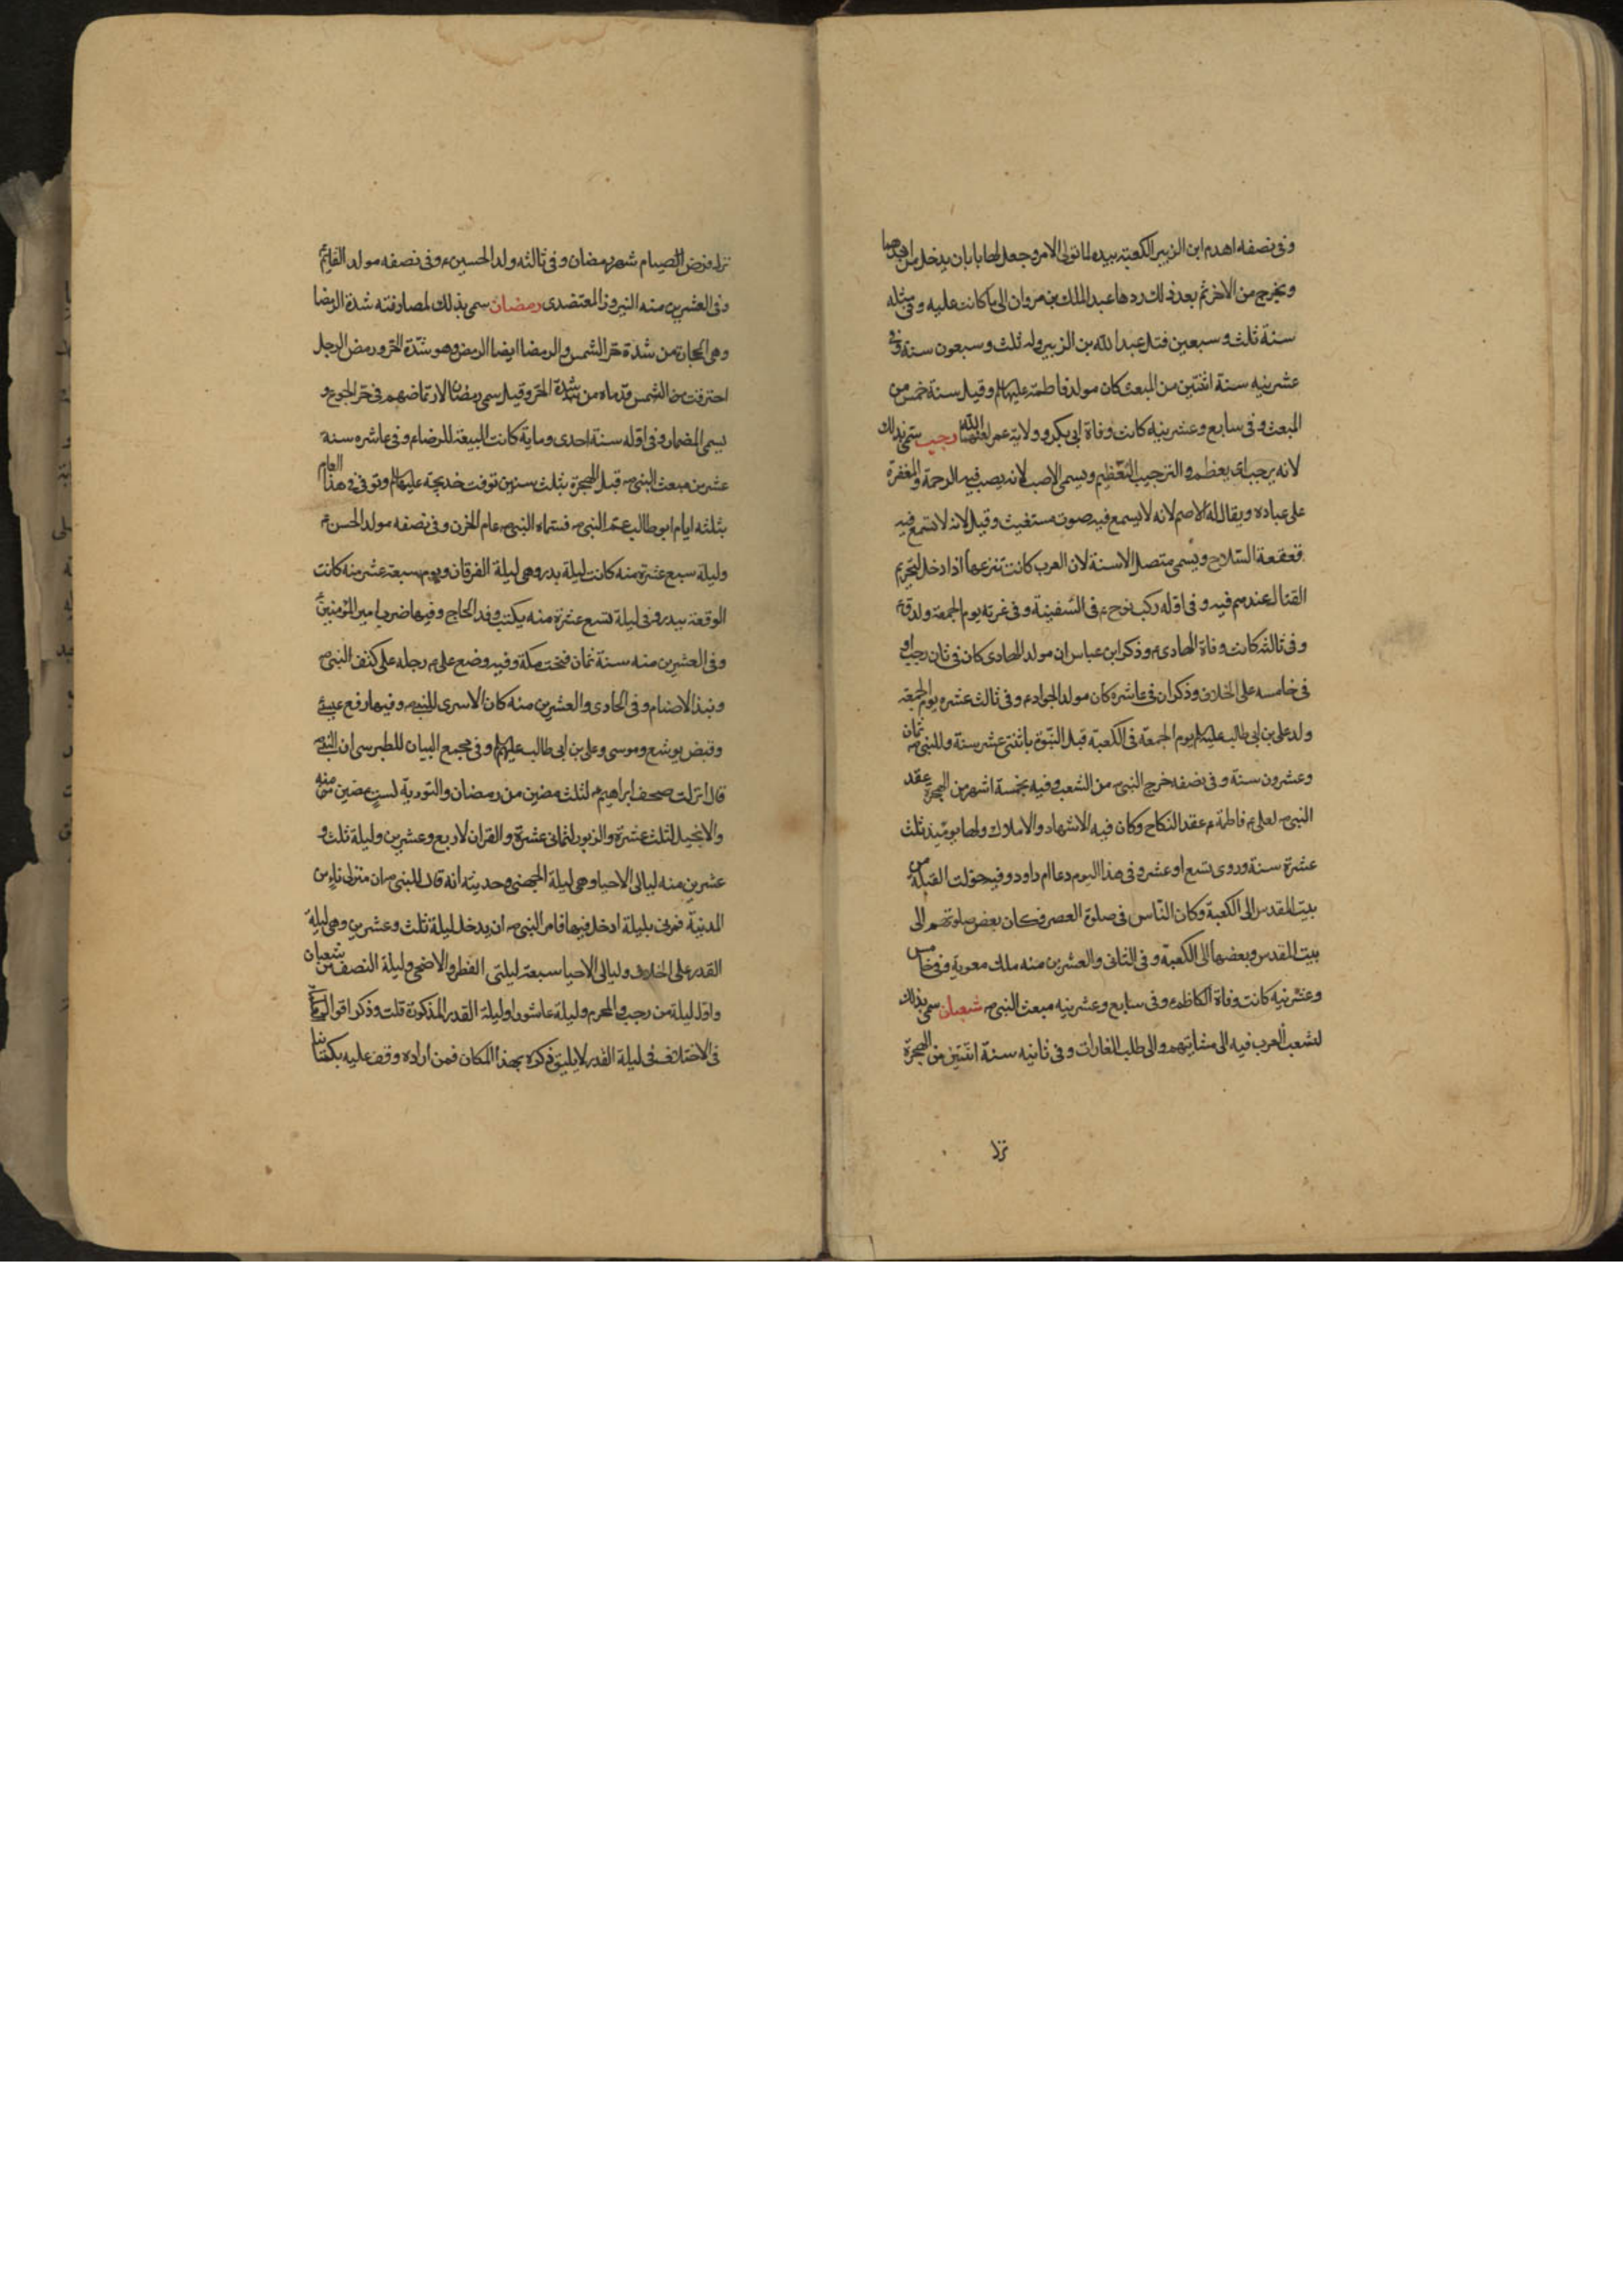 وفى نصفه اهدم ابن الزبير الكعبة بيده لما تولى الامر وجعل لها بابان يدخل من احدهما
ويخرج من الاخر ثم بعد ذلك ردها عبد الملك بن مروان الى ما كانت عليه وفى مثله
سنة ثلث وسبعين قتل عبد الله بن الزبير وله ثلث وسبعون سنة وفى
عشرينه سنة اثنتين من المبعث كان مولد فاطمة عليها السلم وقيل سنة خمس من
المبعث وفى سابع وعشرينه كانت وفاة ابى بكر وولاية عمر رجب سمى بذلك
لانه يرجب اى يعظم والترجيب التعظيم ويسمى الاصب لانه يصب فيه الرحمة والمغفرة
على عباده ويقال له الاصم لانه لا يسمع فيه صوت مستغيث وقيل لانه لا تسمع فيه
قعقعة السلاح ويسمى متصل الاسنة لان العرب كانت تنزعها اذا دخل لتحريم
القتال عندهم فيه وفى اوله ركب نوح ع فى السفينة وفى غرته يوم الجمعة ولد قرء
وفى ثالثه كانت وفاة الهادى ع وذكر ابن عباس ان مولد الهادى كان فى ثان رجب او
فى خامسه على الخلاف وذكر ان فى عاشره كان مولد الجواد ع وفى ثالث عشره يوم الجمعة
ولد على بن ابى طالب عليه السلم يوم الجمعة فى الكعبة قبل النبوة باثنتى عشر سنة وللنبى ص ثمان
وعشرون سنة وفى نصفه خرج النبى ص من الشعب وفيه بخمسة اشهر من الهجرة عقد
النبى ص لعلى ع فاطمة ع عقد النكاح وكان فيه الاشهاد والاملاك ولها يومئذ ثلث
عشرة سنة وروى تسع او عشر وفى هذا اليوم دعا ام داود وفيه حولت القبلة من
بيت المقدس الى الكعبة وكان الناس فى صلوة العصر فكان بعض صلوتهم الى
بيت المقدس وبعضها الى الكعبة وفى الثانى والعشرين منه ملك معوية وفى خامس
وعشرينه كانت وفاة الكاظم ع وفى سابع وعشرينه مبعث النبى ص شعبان سمى بذلك
لتشعب العرب فيه الى مشاتيهم والى طلب الغارات وفى ثانيه سنة اثنتين من الهجرة
نزل
نزل فرض الصيام شهر رمضان وفى ثالثه ولد الحسين ع وفى نصفه مولد القايم ع
وفى العشرين منه النيروز المعتضدى رمضان سمى بذلك لمصادفته شدة الرمضا
وهى الحجارة من شدة حر الشمس والرمضا ايضا الرمض وهو شدة الحر ورمض الرجل
احترقت من الشمس قدماه من شدة الحر وقيل سمى رمضان لارتماضهم فى حر الجوع و
يسمى المضمار وفى اوله سنة احدى وماية كانت البيعة للرضا ع وفى عاشره سنة
عشر من مبعث النبى ص قبل الهجرة بثلث سنين توفت خديجة عليها السلم وتوفى فى هذا العام
بثلثه ايام ابو طالب عم النبى ص فسماه النبى ص عام الحزن وفى نصفه مولد الحسن ع
وليلة سبع عشرة منه كانت ليلة بدر وهى ليلة الفرقان ويوم سبعة عشر منه كانت
الوقعة ببدر وفى ليلة تسع عشرة منه يكتب وفد الحاج وفيها ضرب امير المؤمنين ع
وفى العشرين منه سنة ثمان فتحت مكة وفيه وضع على ع رجله على كتف النبى ص
ونبذ الاصنام وفى الحادى والعشرين منه كان الاسرى للنبى ص وفيها رفع عيسى
وقبض يوشع وموسى وعلى بن ابى طالب عليهم السلم وفى مجمع البيان للطبرسى ان النبى ص
قال انزلت صحف ابراهيم ع لثلث مضين من رمضان والتورية لست مضين منه
والانجيل لثلث عشرة والزبور لثمانى عشرة والقران لاربع وعشرين وليلة ثلث و
عشرين منه ليالى الاحيا وهى ليلة الجهنى وحديثه انه قال للنبى ص ان منزلى ناء من
المدينة فمرنى بليلة ادخل فيها فامر النبى ص ان يدخل ليلة ثلث وعشرين وهى ليلة
القدر على الخلاف وليالى الاحيا سبعة ليلتى الفطر والاضحى وليلة النصف من شعبان
واول ليلة من رجب والمحرم وليلة عاشورا وليلة القدر المذكورة قلت وذكر اقوال
فى الاختلاف فى ليلة القدر لا يليق ذكره بهذا المكان فمن اراده وقف عليه بكتابنا